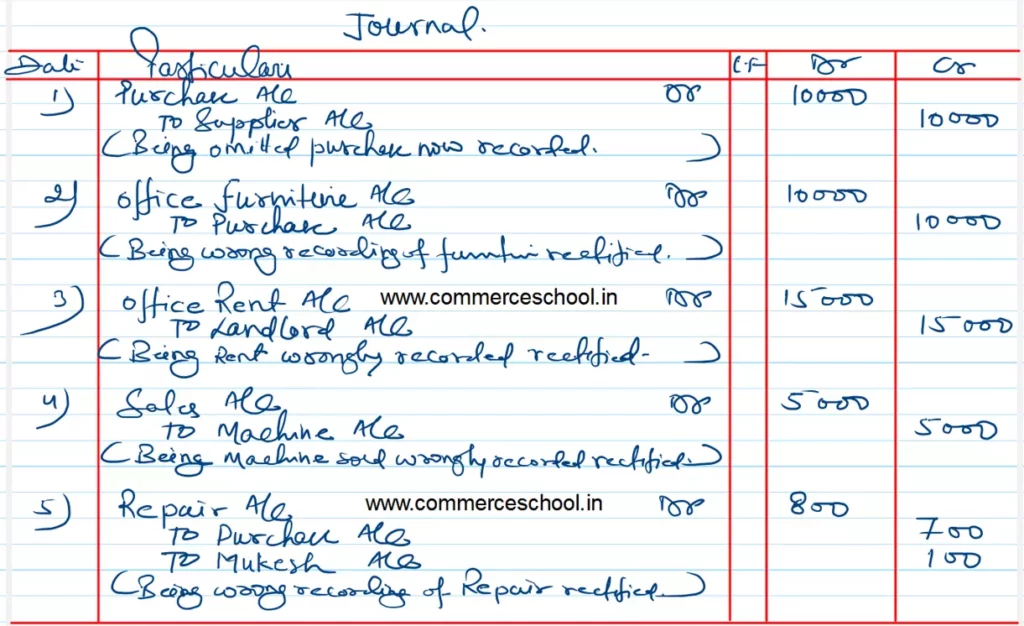 Journal.
Date Particulars L.F Dr Cr
1) Purchase A/c Dr 10000
To Supplier A/c 10000
(Being omitted purchase now recorded. )
2) office furniture A/c Dr 10000
To Purchase A/c 10000
(Being wrong recording of furniture rectified. )
3) office Rent A/c www.commerceschool.in Dr 15000
To Landlord A/c 15000
(Being Rent wrongly recorded rectified- )
4) Sales A/c Dr 5000
To Machine A/c 5000
(Being Machine sold wrongly recorded rectified.)
5) Repair A/c www.commerceschool.in Dr 800
To Purchase A/c 700
To Mukesh A/c 100
(Being wrong recording of Repair rectified.)